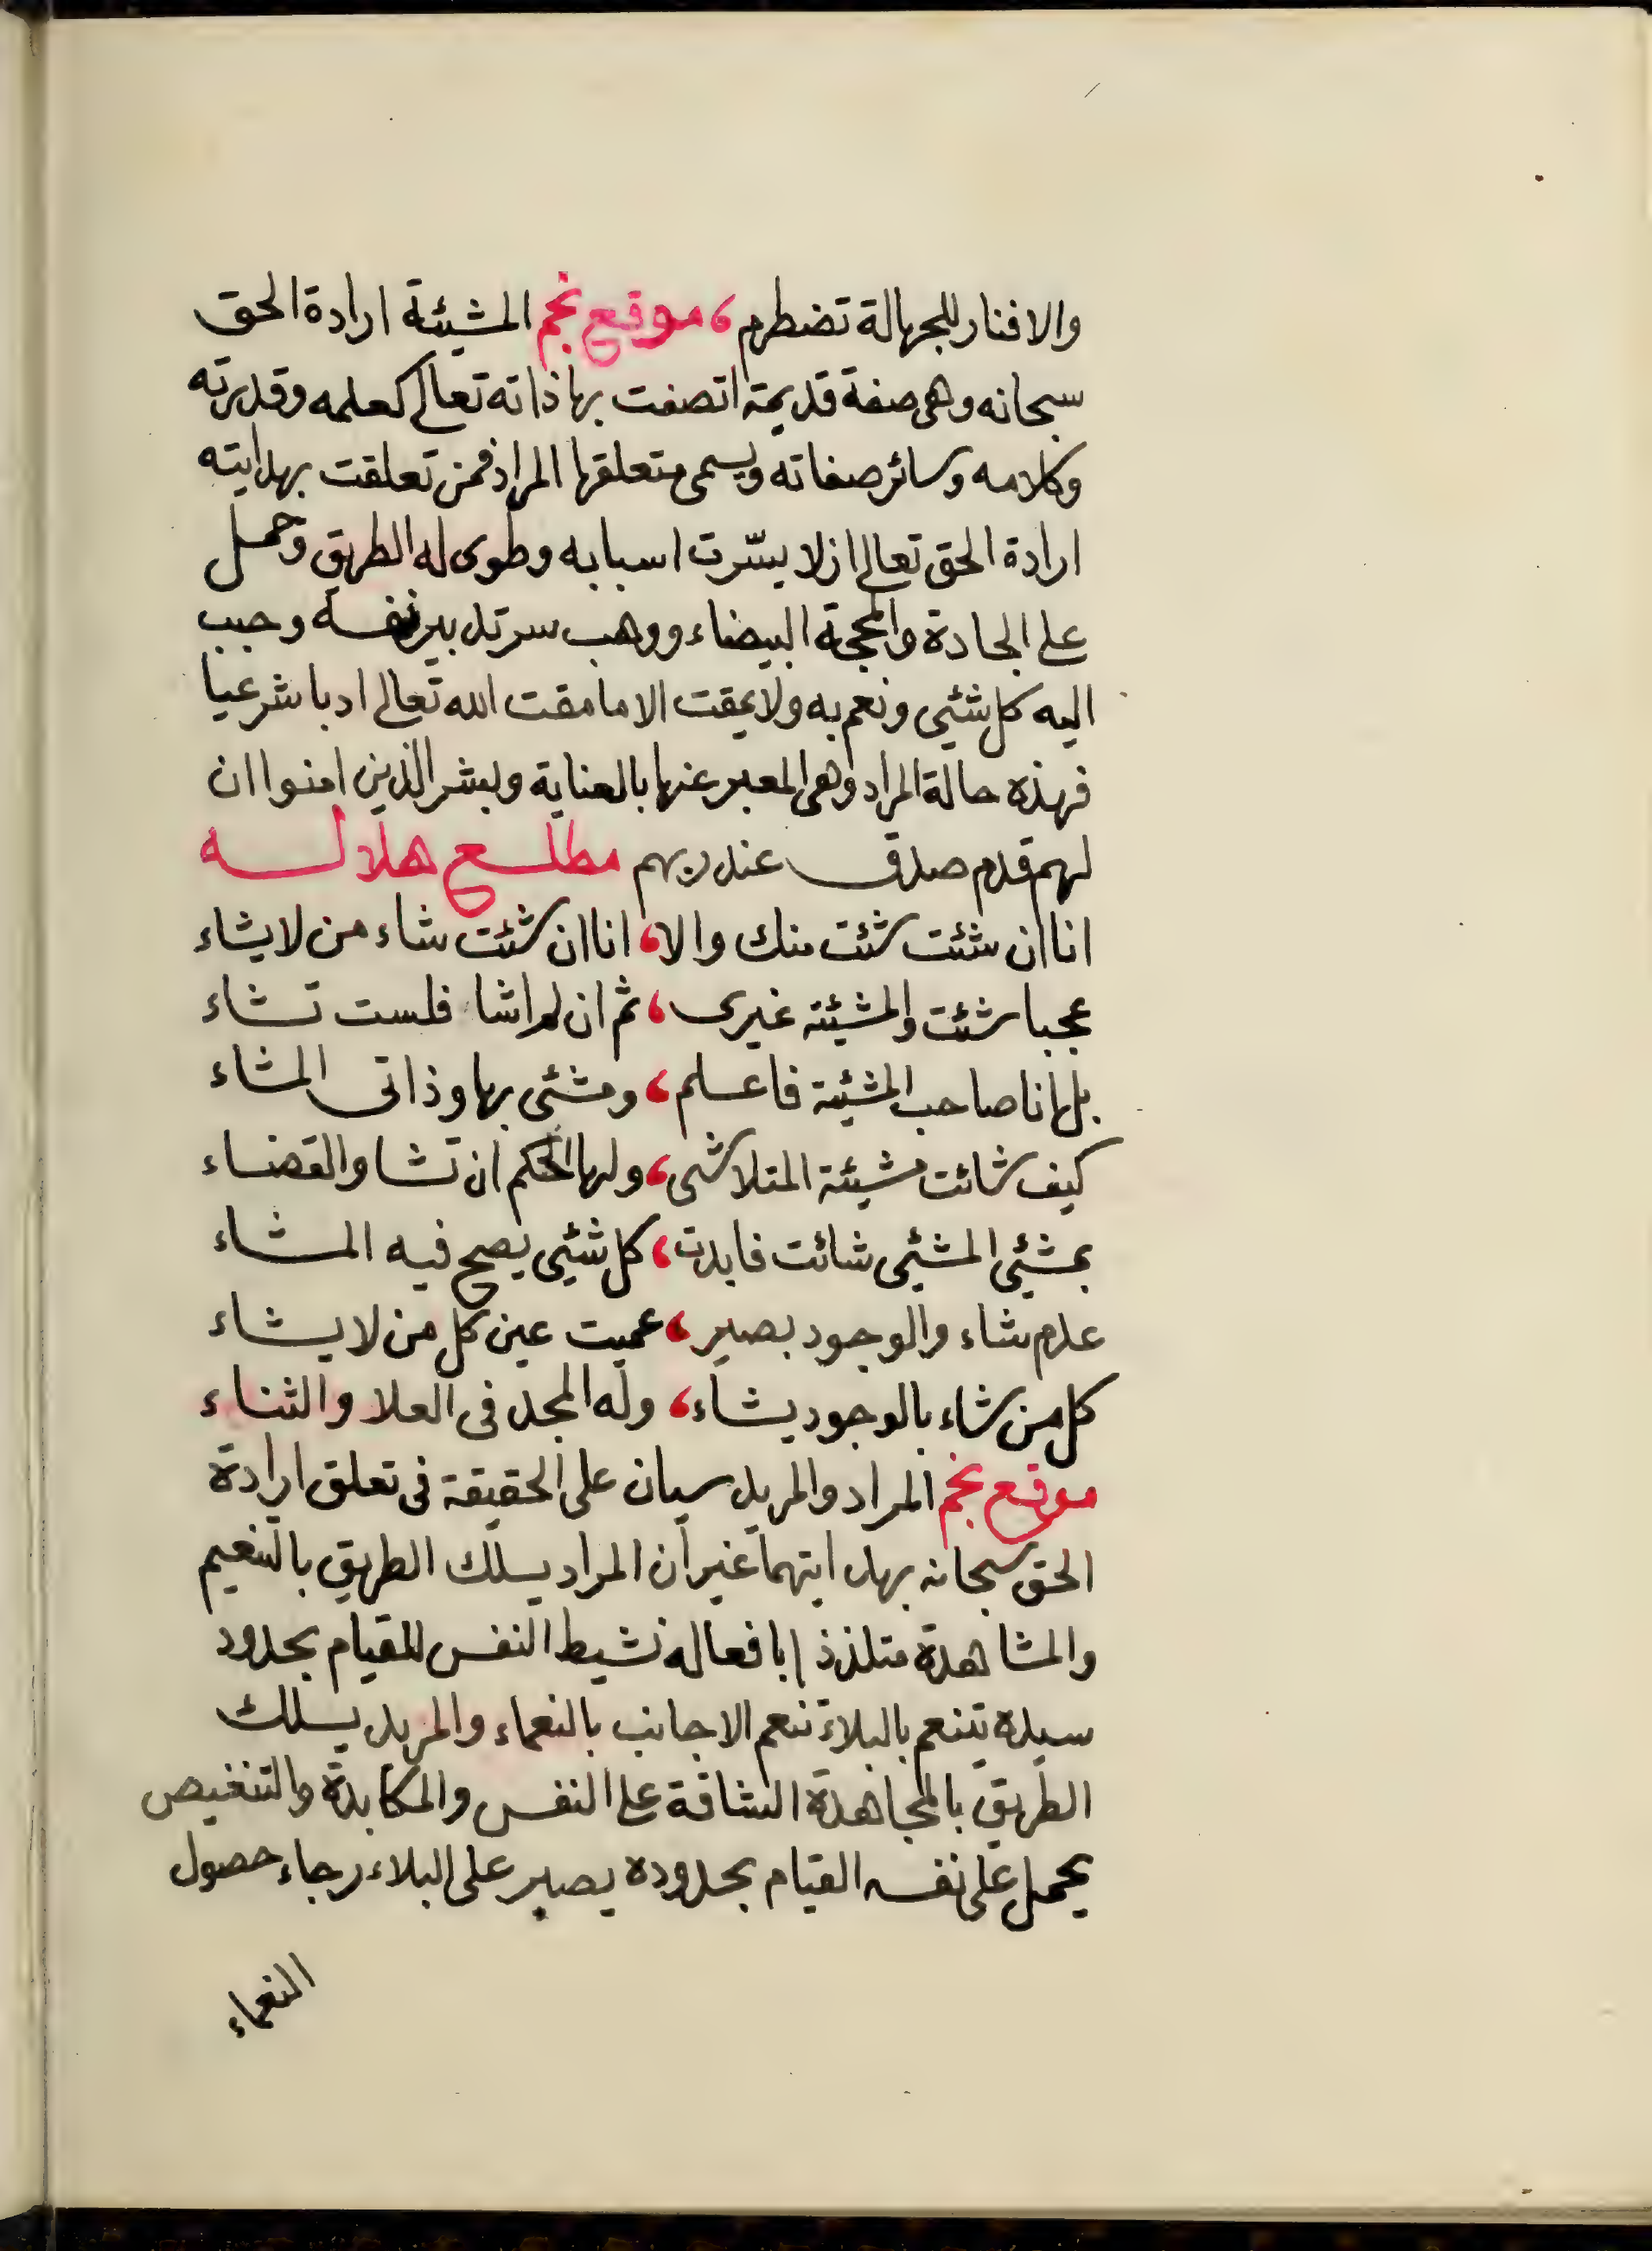 والا فنار للجهالة تضطرم، موقع نجم المشيئة ارادة الحق
سبحانه وهى صفة قديمة اتصفت بها ذاته تعالى كعلمه وقدرته
وكلامه وسائر صفاته ويسمى متعلقها المراد فمن تعلقت بهدايته
ارادة الحق تعالى ازلا يسّرت اسبابه وطوى له الطريق وحمل
على الجادة والمحجة البيضاء ووهب سر تدبير نفسه وحبب
اليه كل شئى ونعم به ولا يمقت الا ما مقت الله تعالى ادبا شرعيا
فهذه حالة المراد وهى المعبر عنها بالعناية وبشر الذين امنوا ان
لهم قدم صدق عند ربهم مطلع هلاله
انا ان شئت شئت منك والا، انا ان شئت شاء من لا يشاء
عجبا شئت والمشيئة غيرى، ثم ان لم اشا فلست تشاء
بل انا صاحب المشيئة فاعلم، ومشئى بها وذاتى المشاء
كيف شائت مشيئة المتلاشى، ولها الحكم ان تشا والقضاء
بمشئى المشئى شائت فابدت، كل شئى يصح فيه المشاء
علام نشاء والوجود بصير، عميت عين كل من لا يشاء
كل من شاء بالوجود يشاء، وله المجد فى العلا والثناء
موقع نجم المراد والمريد سيان على الحقيقة فى تعلق ارادة
الحق سبحانه بهدايتهما غير ان المراد يسلك الطريق بالتنعيم
والمشاهدة متلذذا بافعاله نشيط النفس للقيام بحدود
سيده يتنعم بالبلاء تنعم الاجانب بالنعماء والمريد يسلك
الطريق بالمجاهدة الشاقة على النفس والمكابدة والتنغيص
يحمل على نفسه القيام بحدوده يصبر على البلاء رجاء حصول
النعماء